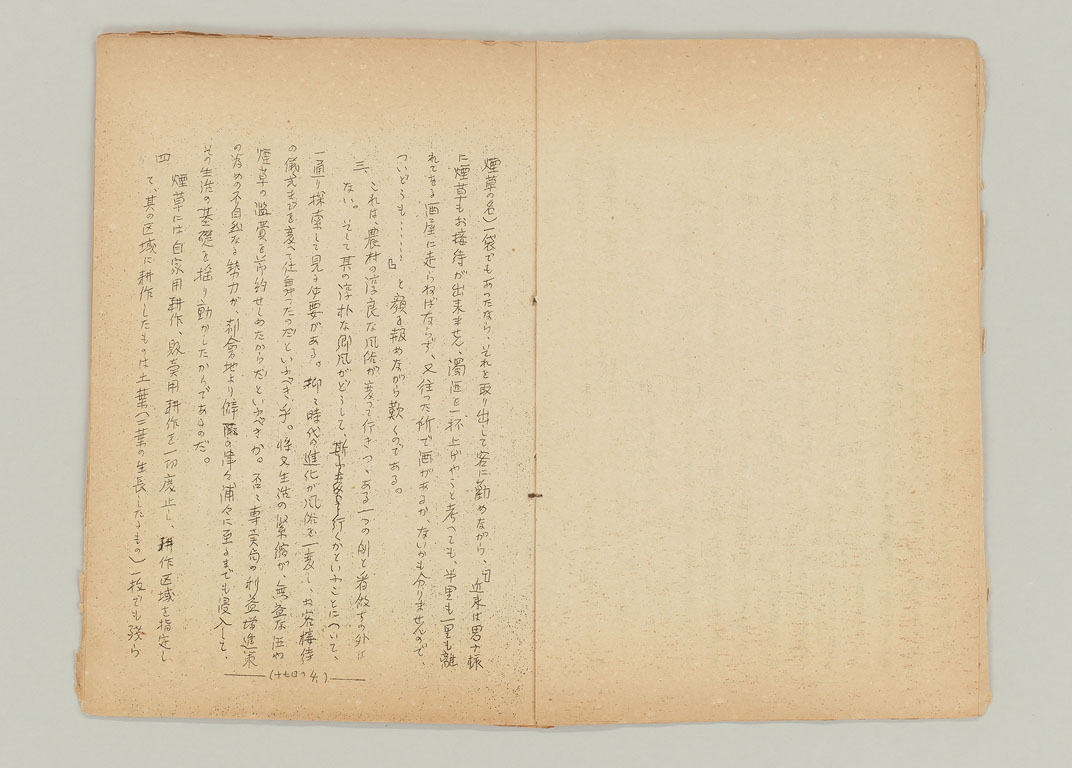 煙草の名)一袋でもあったなら、それを取り出して客に勧めながら、『近来は男子様
に煙草もお接待が出来ませせ、濁酒を一杯上げやうと考っても、半里も一里も離
れてある酒屋に走らねばならず、又往った所で酒があるか、ないかも分りませんので、
ついどうも‥‥‥』と顔を赧めながら歎くのである。
三、これは、農村の淳良な風俗が変って行きつゝある一つの例と看做すの外は
ない。そして其の淳朴な郷風がどうして、斯う変って行くかといふことについて、
一通り探索して見る必要がある。抑々時代の進化が風俗を一変し、お客接待
の儀式までを変へて仕舞ったのだといふべき乎。将又生活の緊縮が、無益な酒や
煙草の濫費を節約せしめたからだといふべきか。否々専売局の利益増進策
の為めの不自然なる勢力が、都会地より僻陬の津々浦々に至るまでも侵入して、
その生活の基礎を揺り動かしたからであるのだ。
四 煙草には自家用耕作、販売用耕作を一切廃止し、耕作区域を指定し
て、其の区域に耕作したものは土葉(二葉の生長したるもの)一枚でも残ら
(十七ロの4)